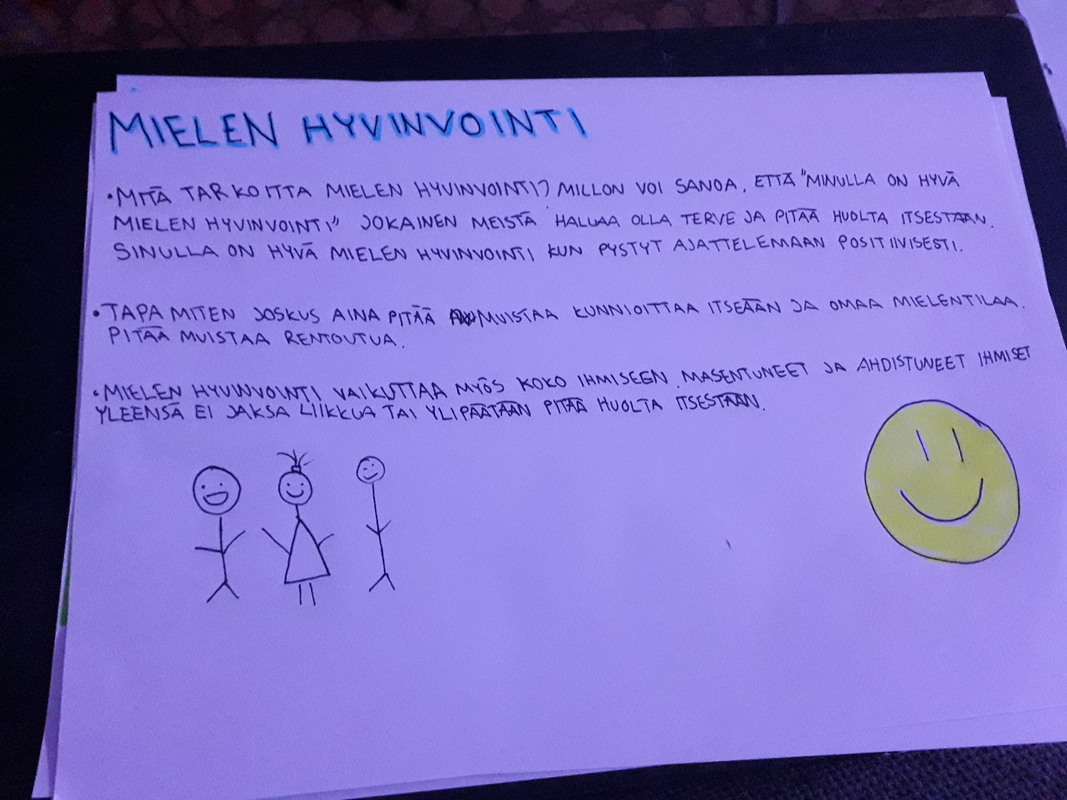 MIELEN HYVINVOINTI
• MITÄ TARKOITTA MIELEN HYVINVOINTI? MILLON VOI SANOA, ETTÄ "MINULLA ON HYVÄ
MIELEN HYVINVOINTI" JOKAINEN MEISTÄ HALUAA OLLA TERVE JA PITÄÄ HUOLTA ITSESTÄÄN.
SINULLA ON HYVÄ MIELEN HYVINVOINTI KUN PYSTYT AJATTELEMAAN POSITIIVISESTI.
• TAPA MITEN JOSKUS AINA PITÄÄ MUISTAA KUNNIOITTAA ITSEÄÄN JA OMAA MIELENTILAA.
PITÄÄ MUISTAA RENTOUTUA.
• MIELEN HYVINVOINTI VAIKUTTAA MYÖS KOKO IHMISEEN. MASENTUNEET JA AHDISTUNEET IHMISET
YLEENSÄ EI JAKSA LIIKKUA TAI YLIPÄÄTÄÄN PITÄÄ HUOLTA ITSESTÄÄN.